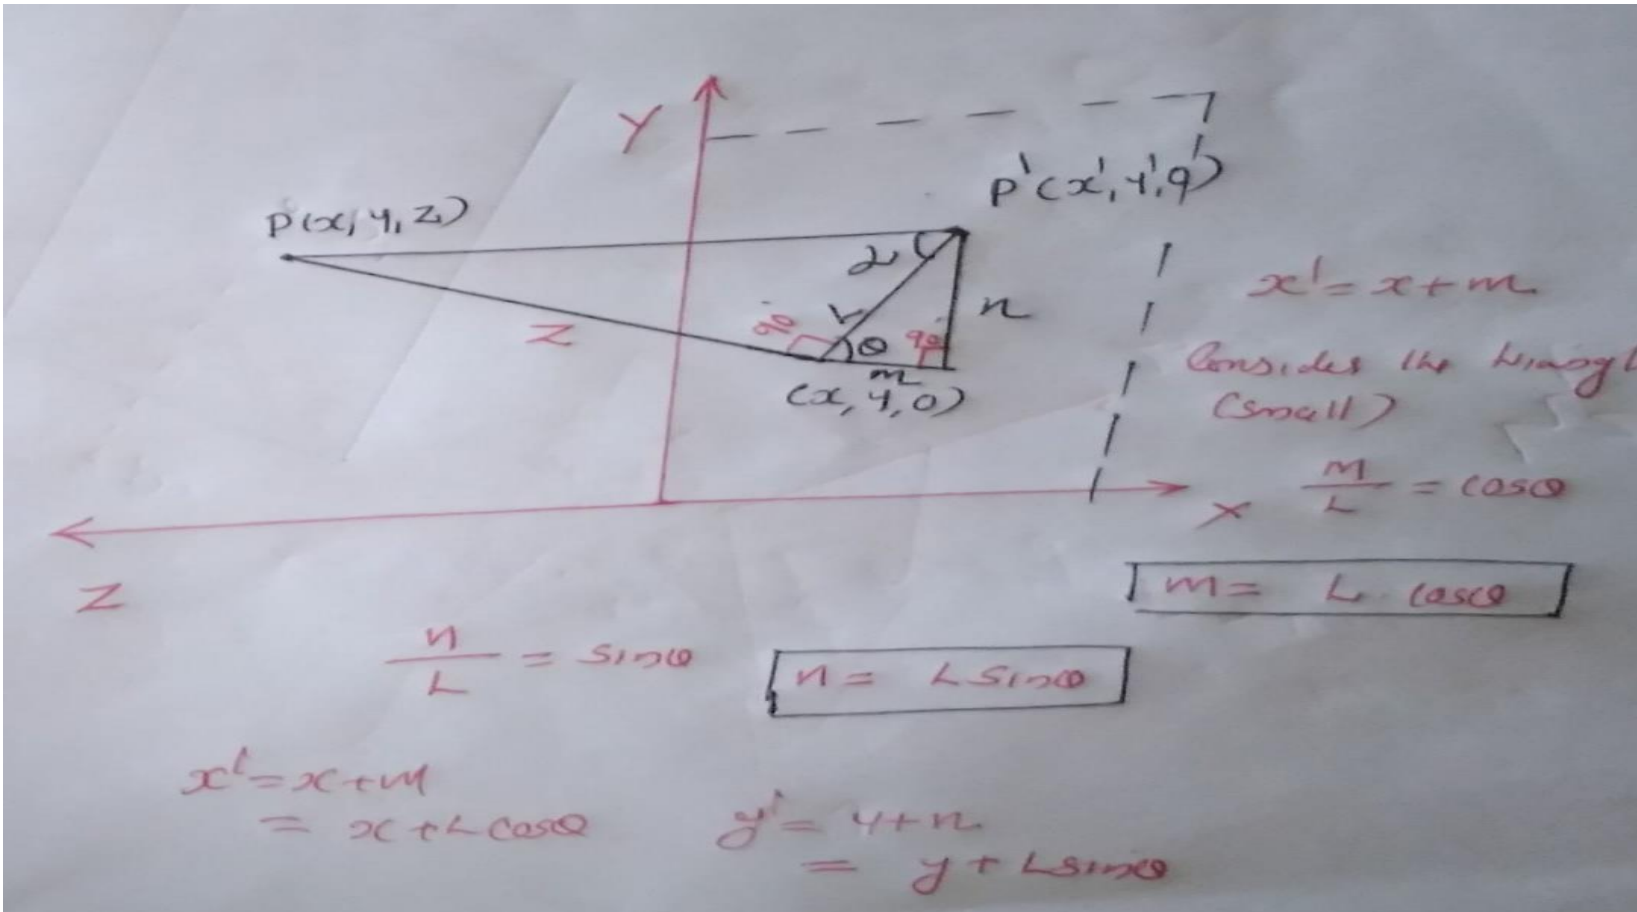 Y
P(x, y, z)
P'(x', y', 9)
α
L
n
90
θ
90
m
Z
(x, y, 0)
x' = x + m
Consider the triangl
(small)
X
m/L = cosθ
Z
m = L. cosθ
n/L = sinθ
n = L sinθ
x' = x + m
= x + L cosθ
y' = y + n
= y + L sinθ